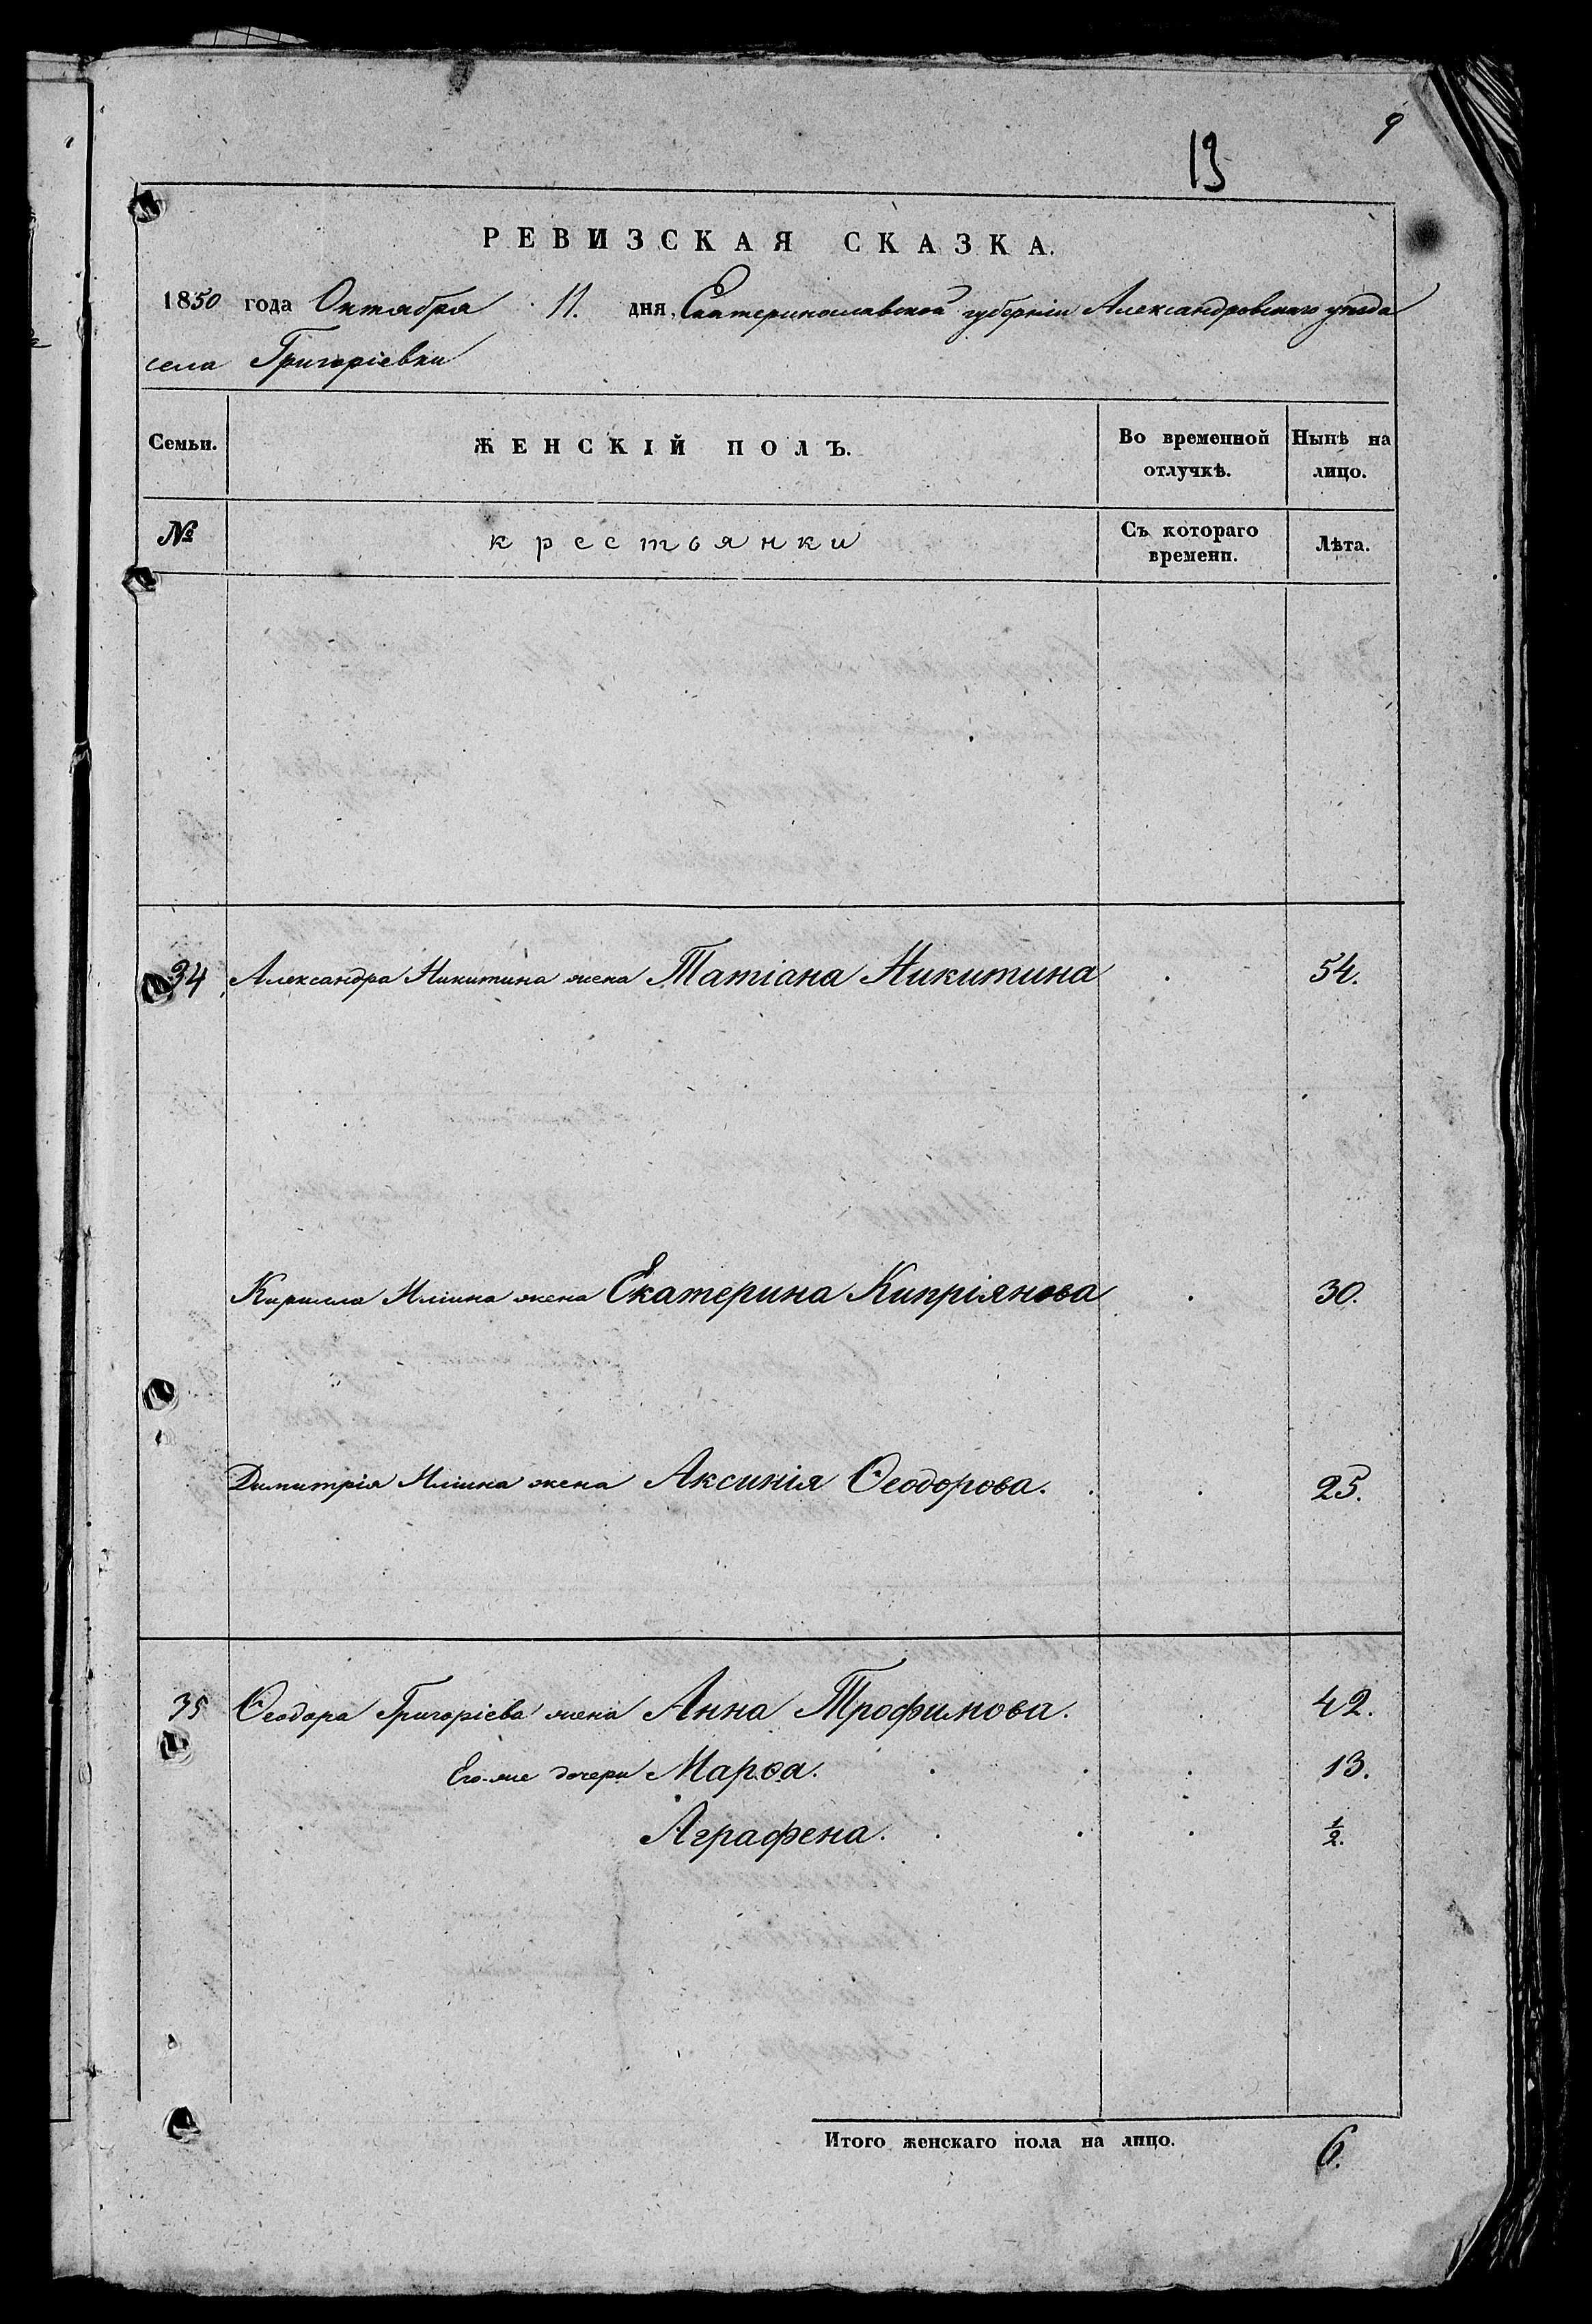 9
13
РЕВИЗСКАЯ СКАЗКА.
1850 года Октября 11. дня, Екатеринославской губерніи Александровскаго уѣзда
села Григоріевки
Семьи. ЖЕНСКІЙ ПОЛЪ. Во временной отлучкѣ. Нынѣ на лицо.
№ крестьянки Съ котораго времени. Лѣта.
34 Александра Никитина жена Татіана Никитина 54.
Кирилла Иліина жена Екатерина Кипріянова 30.
Димитрія Иліина жена Аксинія Ѳеодорова. 25.
35 Ѳеодора Григоріева жена Анна Трофимова. 42.
Его-же дочери Марѳа. 13.
Аграфена. ½.
Итого женскаго пола на лицо. 6.